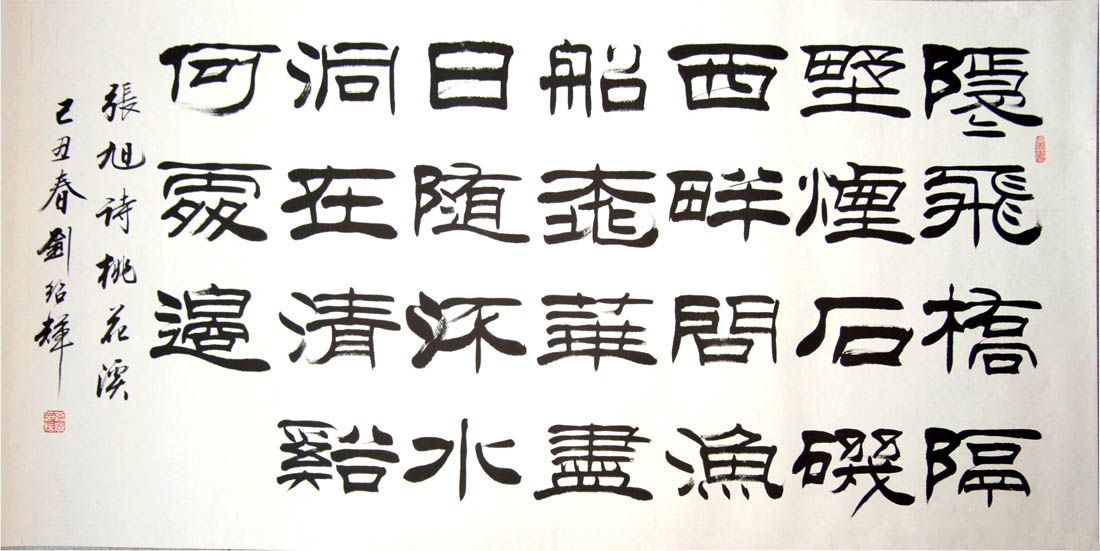 隱〻飛橋隔
野煙石磯
西畔問漁
船桃華盡
日随流水
洞在清谿
何處邊
張旭诗桃花溪
己丑春劉紹輝